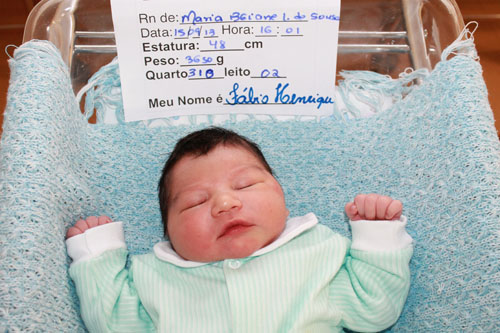 Rn de: Maria Regiane L. de Sousa
Data: 15/09/13 Hora: 16:01
Estatura: 48 cm
Peso: 3630 g
Quarto 310 leito 02
Meu Nome é Fábio Henrique